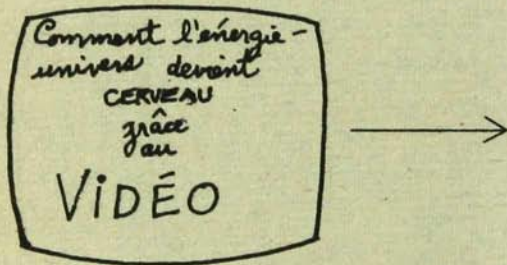 Comment l'énergie-
univers devient
CERVEAU
grâce
au
ViDÉO